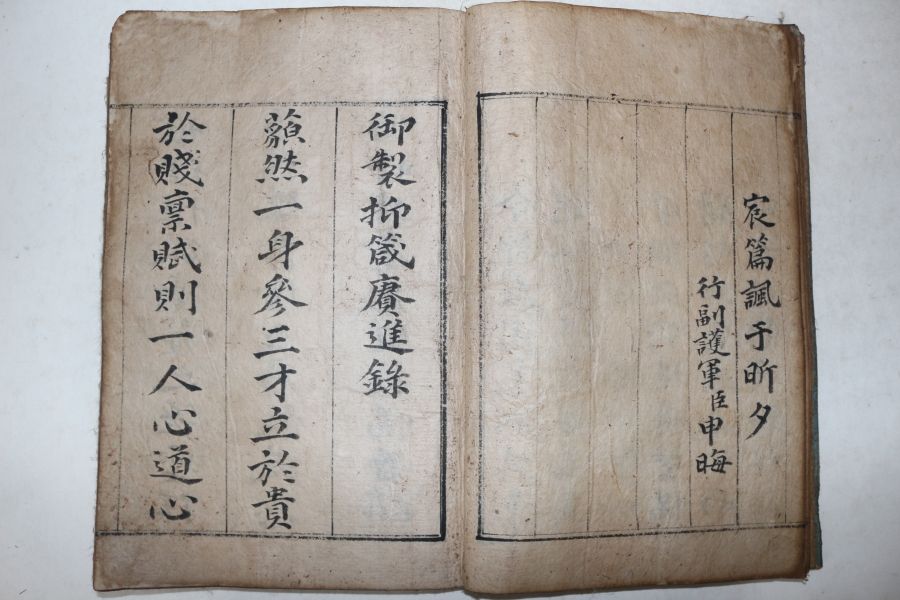 宸篇諷于昕夕
行副護軍臣申晦
御製抑箴賡進錄
藐然一身參三才立於貴
於賤禀賦則一人心道心